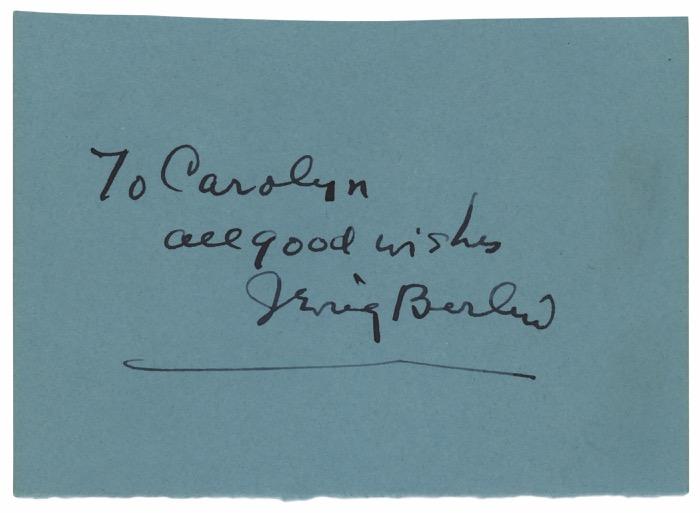 To Carolyn
all good wishes
Irving Berlin